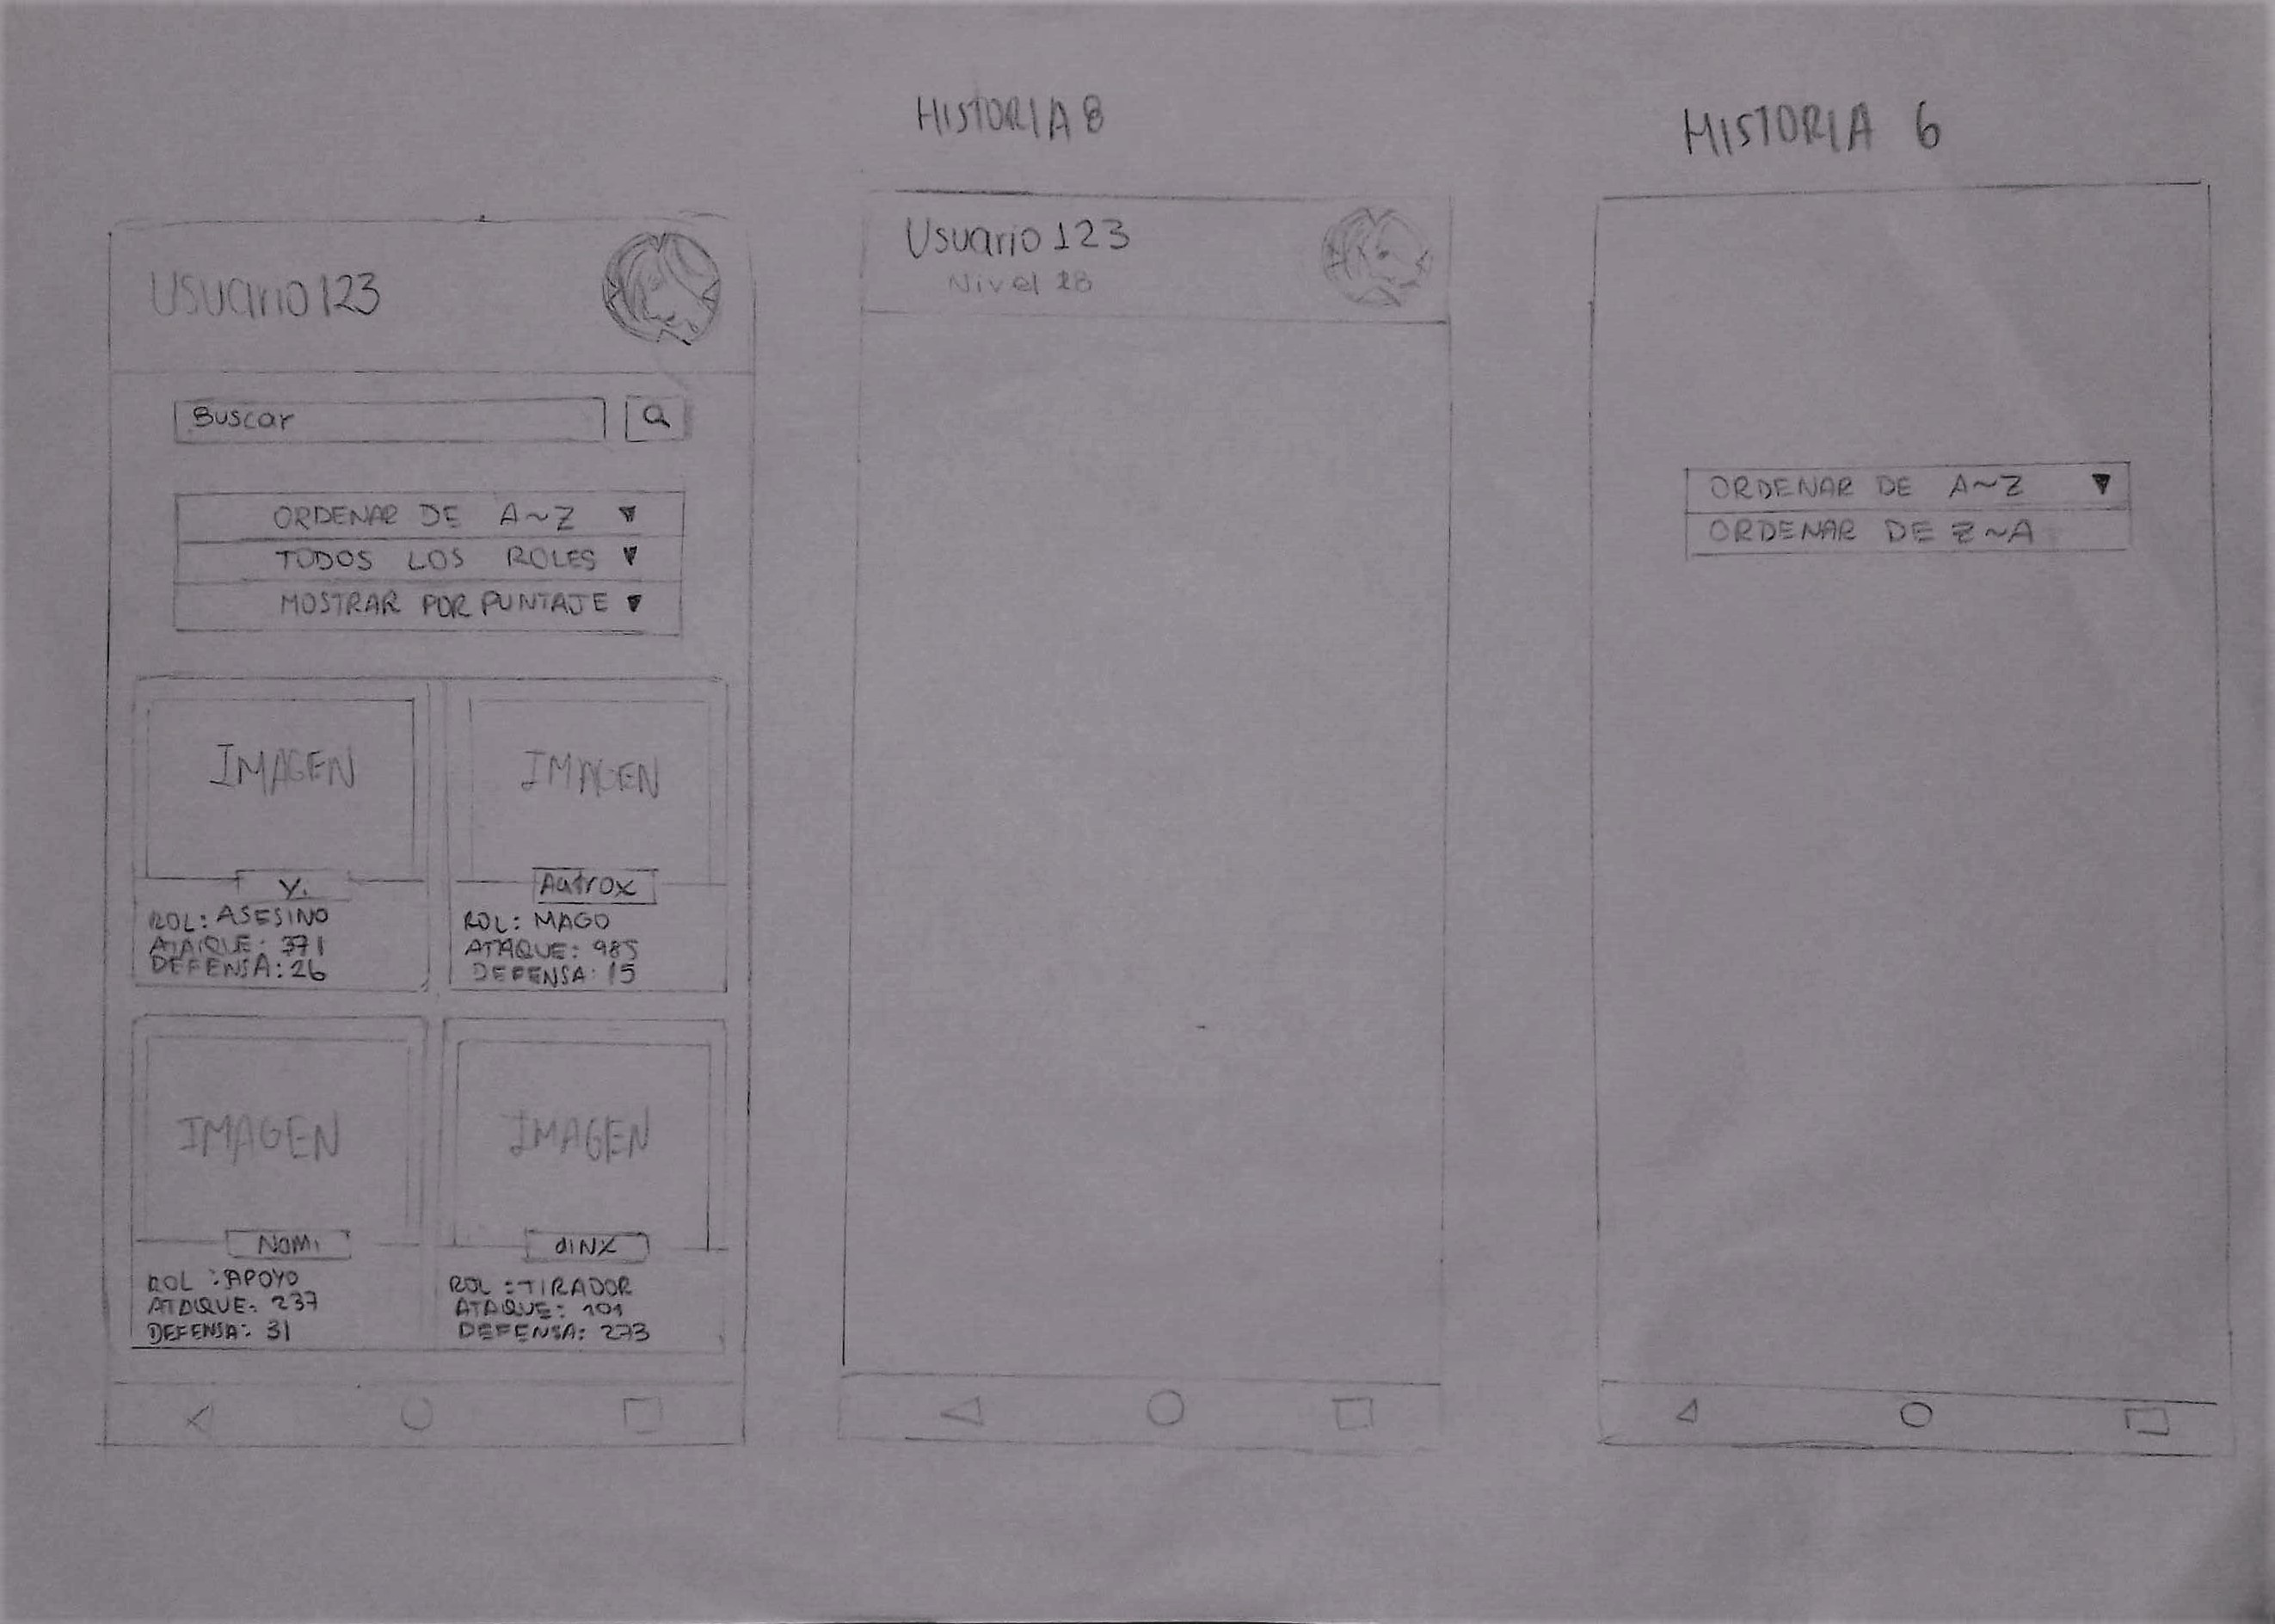 Usuario 123
Buscar
ORDENAR DE A~Z
TODOS LOS ROLES
MOSTRAR POR PUNTAJE
IMAGEN
Yi
ROL: ASESINO
ATAQUE: 371
DEFENSA: 26
IMAGEN
Aatrox
ROL: MAGO
ATAQUE: 985
DEFENSA: 15
IMAGEN
NaMi
ROL: APOYO
ATAQUE: 237
DEFENSA: 31
IMAGEN
JiNX
ROL: TIRADOR
ATAQUE: 101
DEFENSA: 273
HISTORIA 8
Usuario 123
Nivel 28
HISTORIA 6
ORDENAR DE A~Z
ORDENAR DE Z~A